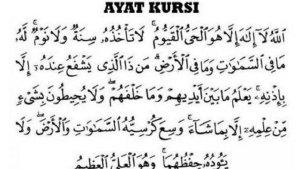 AYAT KURSI
اَللّٰهُ لَآ اِلٰهَ اِلَّا هُوَ الْحَيُّ الْقَيُّوْمُ ۚ لَا تَأْخُذُهٗ سِنَةٌ وَّلَا نَوْمٌ ۗ لَهٗ
مَا فِى السَّمٰوٰتِ وَمَا فِى الْاَرْضِ ۗ مَنْ ذَا الَّذِيْ يَشْفَعُ عِنْدَهٗٓ اِلَّا
بِاِذْنِهٖ ۗ يَعْلَمُ مَا بَيْنَ اَيْدِيْهِمْ وَمَا خَلْفَهُمْ ۚ وَلَا يُحِيْطُوْنَ بِشَيْءٍ
مِّنْ عِلْمِهٖٓ اِلَّا بِمَا شَاۤءَ ۚ وَسِعَ كُرْسِيُّهُ السَّمٰوٰتِ وَالْاَرْضَ ۚ وَلَا
يَـُٔوْدُهٗ حِفْظُهُمَا ۚ وَهُوَ الْعَلِيُّ الْعَظِيْمُ